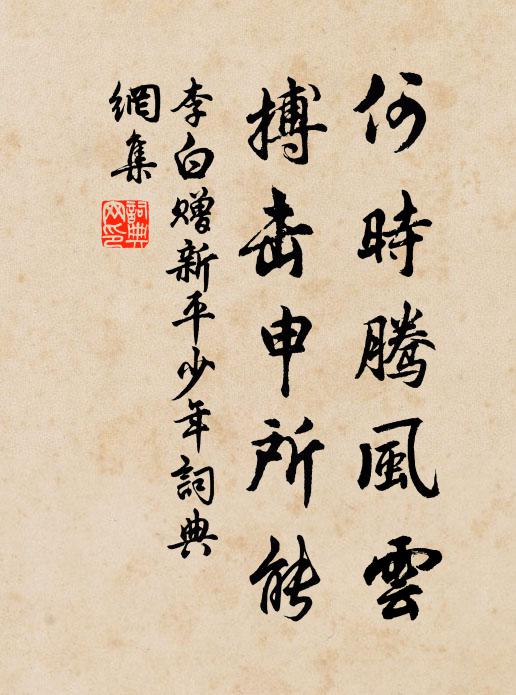 何時騰風雲
搏击申所能
李白赠新平少年詞典
網集
詞典
网印